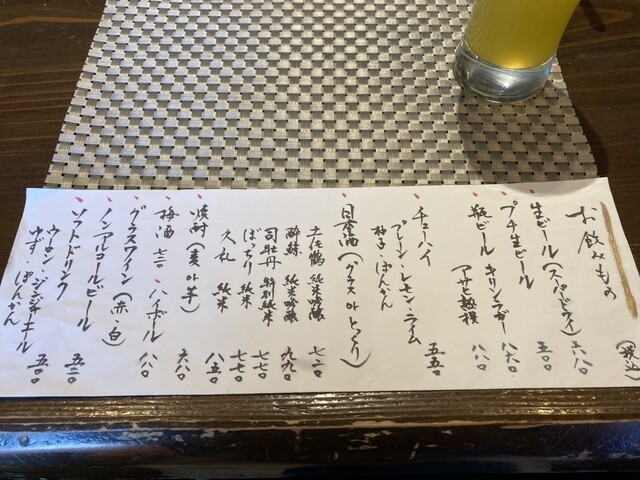 お飲みもの
(税込)
生ビール(スーパードライ) 六八〇
プチ生ビール 五〇〇
瓶ビール キリンラガー 八六〇
(アサヒ熟撰 八八〇
チューハイ
プレーン・レモン・ライム
柚子・ぽんかん 五五〇
日本酒(グラス or とっくり)
土佐鶴 純米吟醸
酔鯨 純米吟醸 九九〇
司牡丹 特別純米
ばっちり 純米 七七〇
久礼 純米 八五〇
焼酎(麦 or 芋) 六八〇
梅酒 七二〇 ハイボール
グラスワイン(赤・白)
ノンアルコールビール
ソフトドリンク 五二〇
ウーロン・ジンジャエール
ゆず・ぽんかん 五〇〇